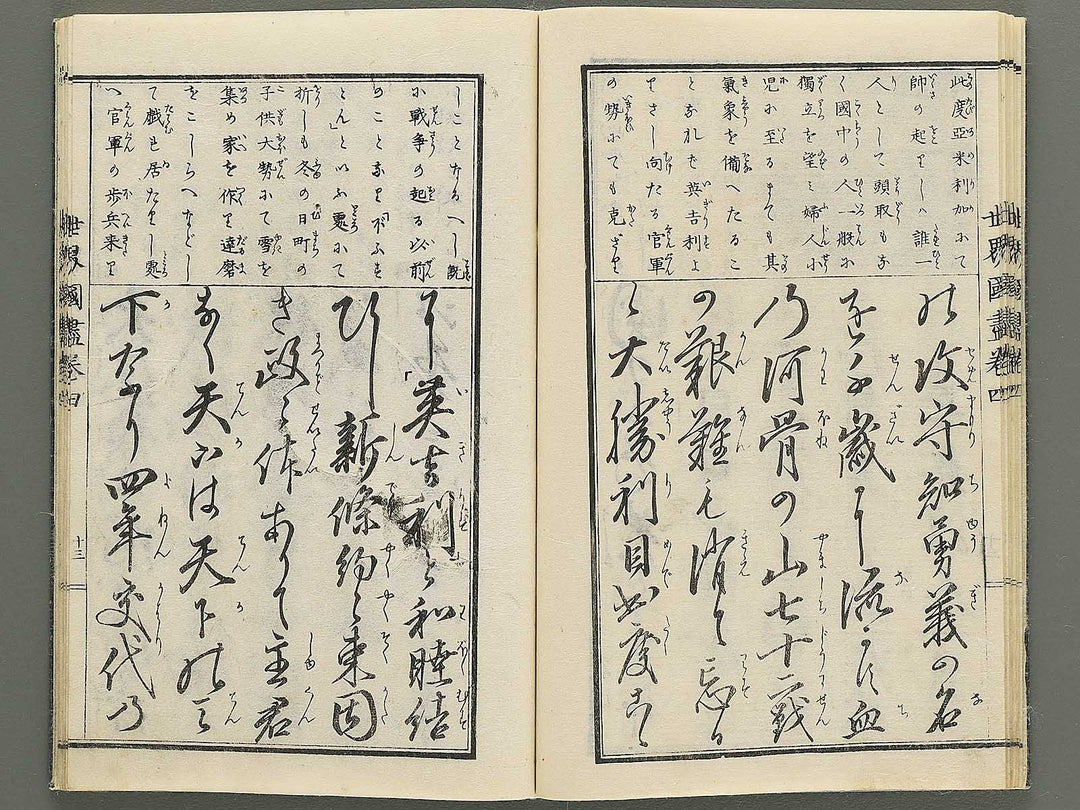 此度亞米利加にて
師の起りしハ誰一
人として頭取もな
く國中の人一般に
獨立を望ミ婦人小
児に至るまても其
氣象を備へたるこ
となれハ英吉利よ
りさし向たる官軍
の勢にても克ざり
の攻守知勇義の名
を千歳に流るゝ血
乃河骨の山七十二戦
の艱難も消て忘る
ゝ大勝利目出度こゝ
世界國盡卷四
しことなるへし既
に戦争の起る以前
のことなりぶふす
とん」といふ處にて
折しも冬の日町の
子供大勢にて雪を
集め家を作り達磨
をこしらへなどし
て戯れ居たりし處
へ官軍の歩兵来り
に英吉利と和睦結
びし新條約束固
き政体ありて主君
なく天下は天下の天
下なり四年交代乃
世界國盡卷四
十三